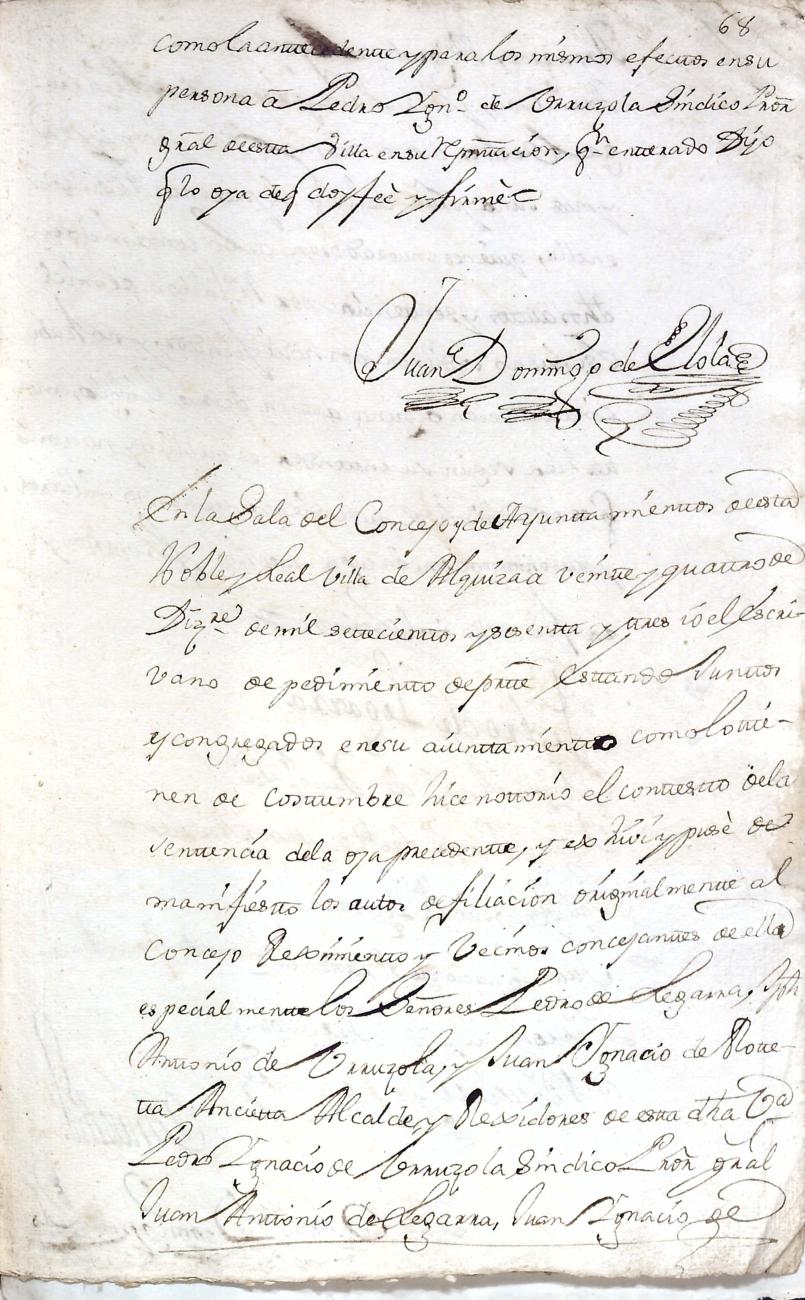 68
como la antecedente y para los mismos efectos en su
persona a Pedro Ygn.º de Urruzola Sindico Prôr
gñral de esta Villa en su Repñtacion, qn enterado Dijo
q lo oya de q doy feè y firmè
Juan Domingo de Elola
En la Sala del Concejo y de Ayunttamientos de esta
Noble y Leal Villa de Alquiza a veinte y quattro de
Diz.re de mil settecientos y sesentta y tres io el Escri-
vano de pedimiento de partte Estando Junttos
y congregados en su aiunttamientto como lo tie-
nen de costtumbre hice nottorio el contestto de la
sentencia de la oja precedentte, y exhivi y pusè de
manifiestto los autos de filiacion originalmente al
Concejo Reximientto y Vecinos concejanttes de ella
especialmentte los Señores Pedro de Legarra, Jph
Anttonio de Urruzola, y Juan Ygnacio de Rove-
tta Ancietta Alcalde y Rexidores de esta dha Va
Pedro Ygnacio de Urruzola Sindico Prôr gñral
Juan Anttonio de Legarra, Juan Ygnacio de